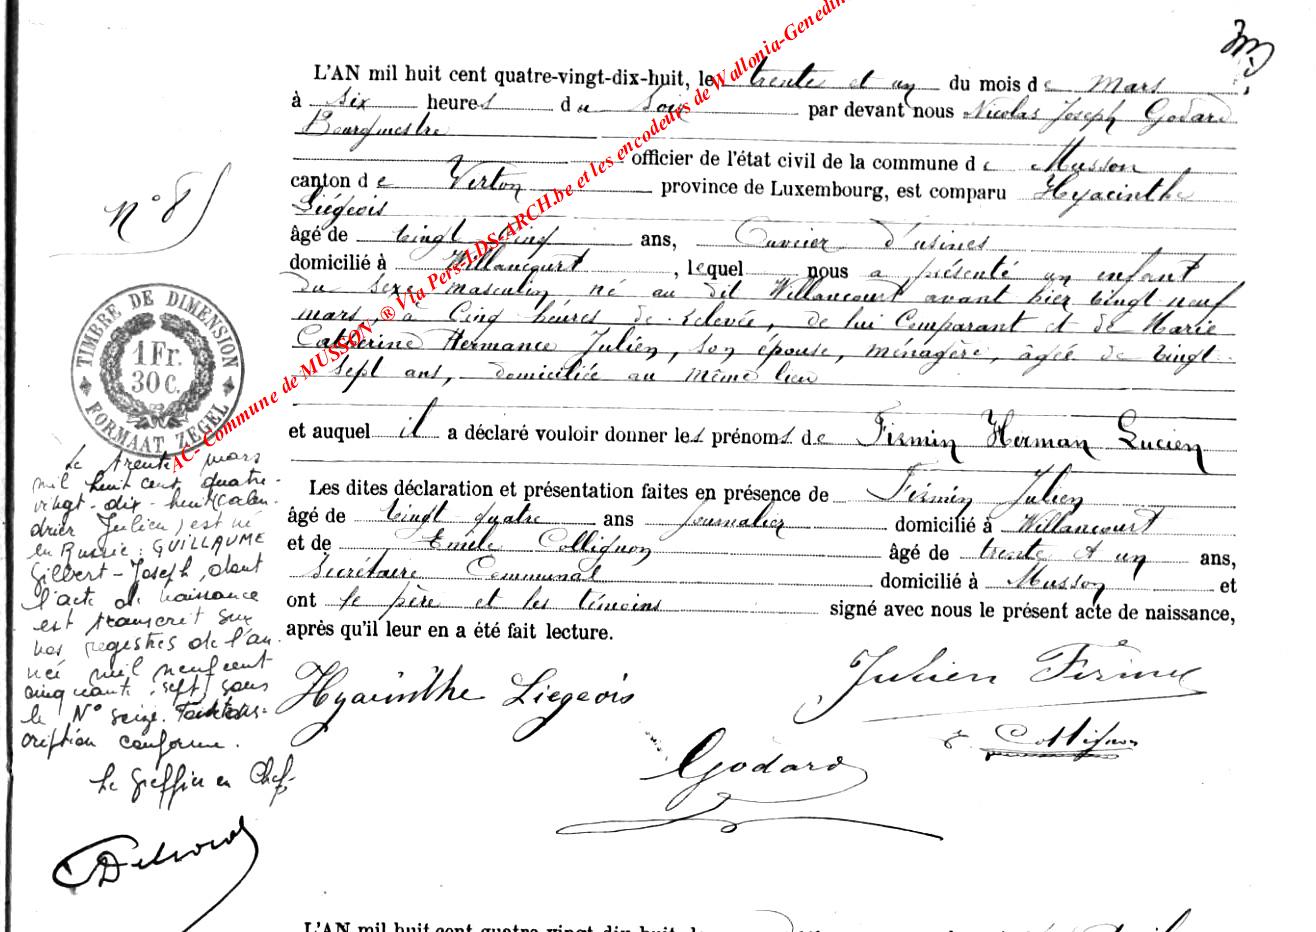 L'AN mil huit cent quatre-vingt-dix-huit, le trente et un du mois de Mars
à six heures du soir par devant nous Nicolas Joseph Godard
Bourgmestre
officier de l'état civil de la commune de Musson
canton de Virton province de Luxembourg, est comparu Hyacinthe
Liégeois
âgé de vingt cinq ans, Ouvrier d'usines
domicilié à Willancourt, lequel nous a présenté un enfant
du sexe masculin né au dit Willancourt avant hier vingt neuf
mars, à Cinq heures de relevée, de lui Comparant et de Marie
Catherine Hermance Julien, son épouse, ménagère, âgée de vingt
sept ans, domiciliée au même lieu
et auquel il a déclaré vouloir donner les prénoms de Firmin Herman Lucien
Les dites déclaration et présentation faites en présence de Firmin Julien
âgé de vingt quatre ans journalier domicilié à Willancourt
et de Emile Collignon âgé de trente et un ans,
Secrétaire Communal domicilié à Musson et
ont le père et les témoins signé avec nous le présent acte de naissance,
après qu'il leur en a été fait lecture.
Hyacinthe Liegeois
Julien Firmin
E Collignon
Godard
N° 8
TIMBRE DE DIMENSION
1 Fr.
30 C.
FORMAAT ZEGEL
Le trente mars
mil huit cent quatre-
vingt-dix-huit (calen
drier Julien) est né
en Russie: GUILLAUME
Gilbert-Joseph, dont
l'acte de naissance
est transcrit sur
nos registres de l'an-
née mil neuf cent
cinquante-sept sous
le N° seize.
cription conforme.
Le Greffier en Chef
AC-Commune de MUSSON-® Via Pers-LDS-ARCH.be et les encodeurs de Wallonia-Genedin
L'AN mil huit cent quatre-vingt-dix-huit, le